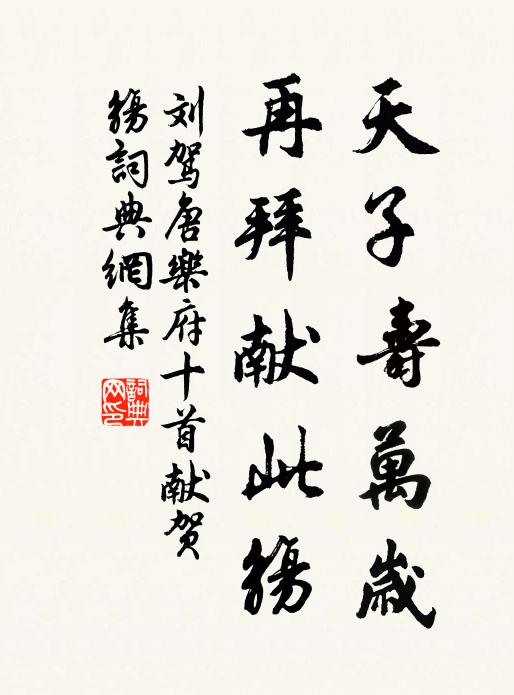 天子壽萬歲
再拜献此觴
刘驾唐樂府十首献贺
觴詞典網集
詞典网印